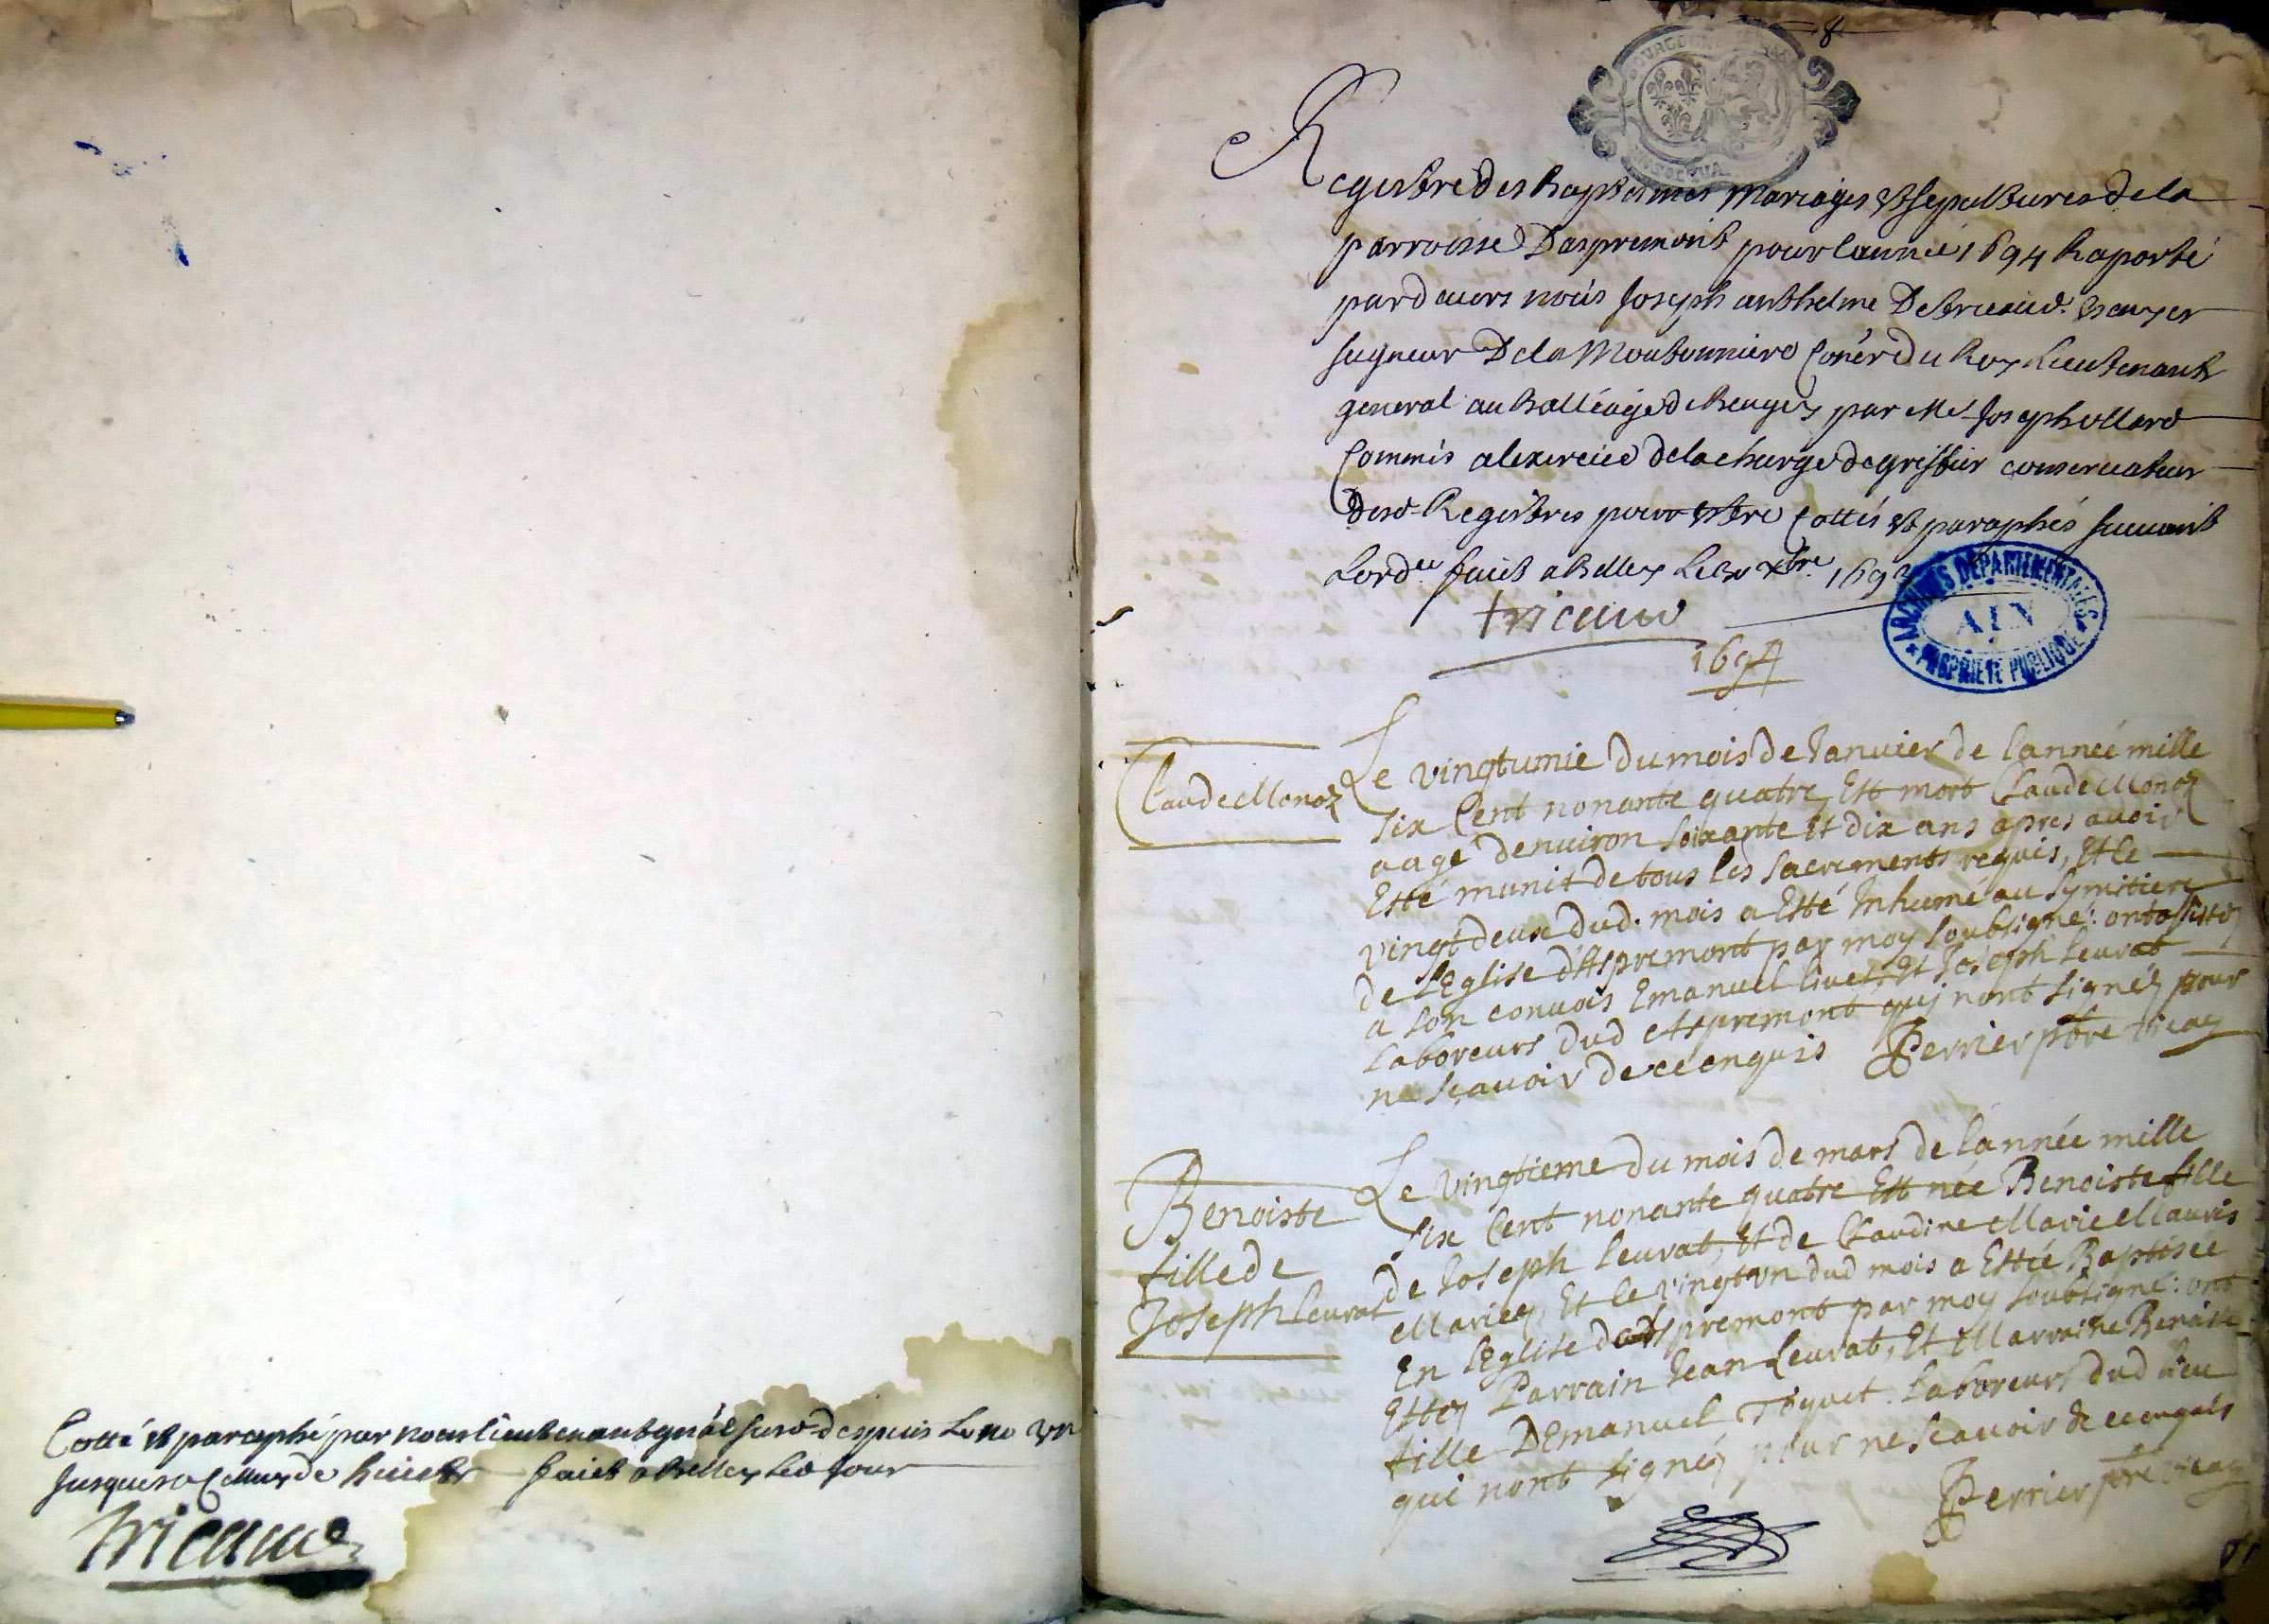 Cotté et paraphé par nous lieutenant gnâl susd despuis Le no un
Jusques a Celluy de huict faict a Belley Led Jour
tricaud
8
Registre des Baptesmes Mariages et sepultures de la
parroisse Daspremont pour lannée 1694 Raporté
pardevers nous Joseph anthelme De tricaud Escuyer
seigneur De la Moutonniere Conér du Roy Lieutenant
general au Balliage de Beugey par Me Joseph
Commis a lexercice de la charge de greffier conservateur
desd Registres pour estre Cottés et paraphés suivant
Lordce faict a Belley Le xbre 1693
tricaud
ARCHIVES DEPARTEMENTALES
AIN
PROPRIETE PUBLIQUE
1694
Claude Monoz
Le vingtunie du mois de Janvier de lannée mille
six Cent nonante quatre Est mort Claude Monoz
aagé denviron soixante Et dix ans apres avoir
Esté munit de tous les sacrements requis, Et le
vingtdeux dud. mois a Esté Inhumé au symitiere
de lEglise d'Aspremont par moy soubsigné: ont assistéz
a son convois Emanuel livet, Et Joseph leurat
Laboreurs dud Aspremont quj nont signéz pour
ne scavoir de ce enquis Perrier pbre vicay
Benoiste
fille de
Joseph leurat
Le vingtieme du mois de mars de lannée mille
six Cent nonante quatre Est née Benoiste fille
de Joseph leurat, Et de Claudine Marie Mauris
Mariez, Et le vingtun dud mois a Estée Baptisée
En lEglise daspremont par moy soubsigné: ont
Estez Parrain Jean Leurat, Et Marraine Benoiste
fille DEmanuel laboreurs dud lieu
qui nont signéz pour ne scavoir de ce enquis
Perrier pbre vicay